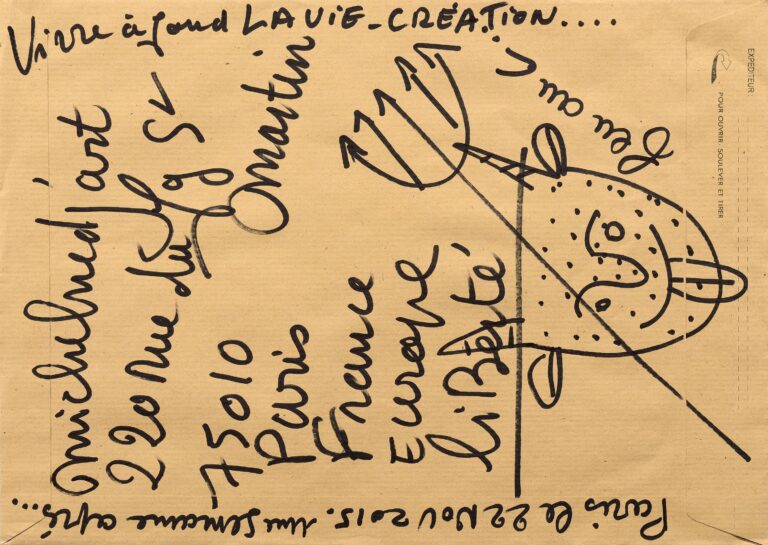 Vivre à fond LA VIE-CRÉATION....
Feu au
michelnedj'art
220 rue du fg St martin
75010
Paris
France
Europe
liBerté
Paris le 22 NOV 2015. une semaine aprè...
EXPÉDITEUR :
POUR OUVRIR SOULEVER ET TIRER